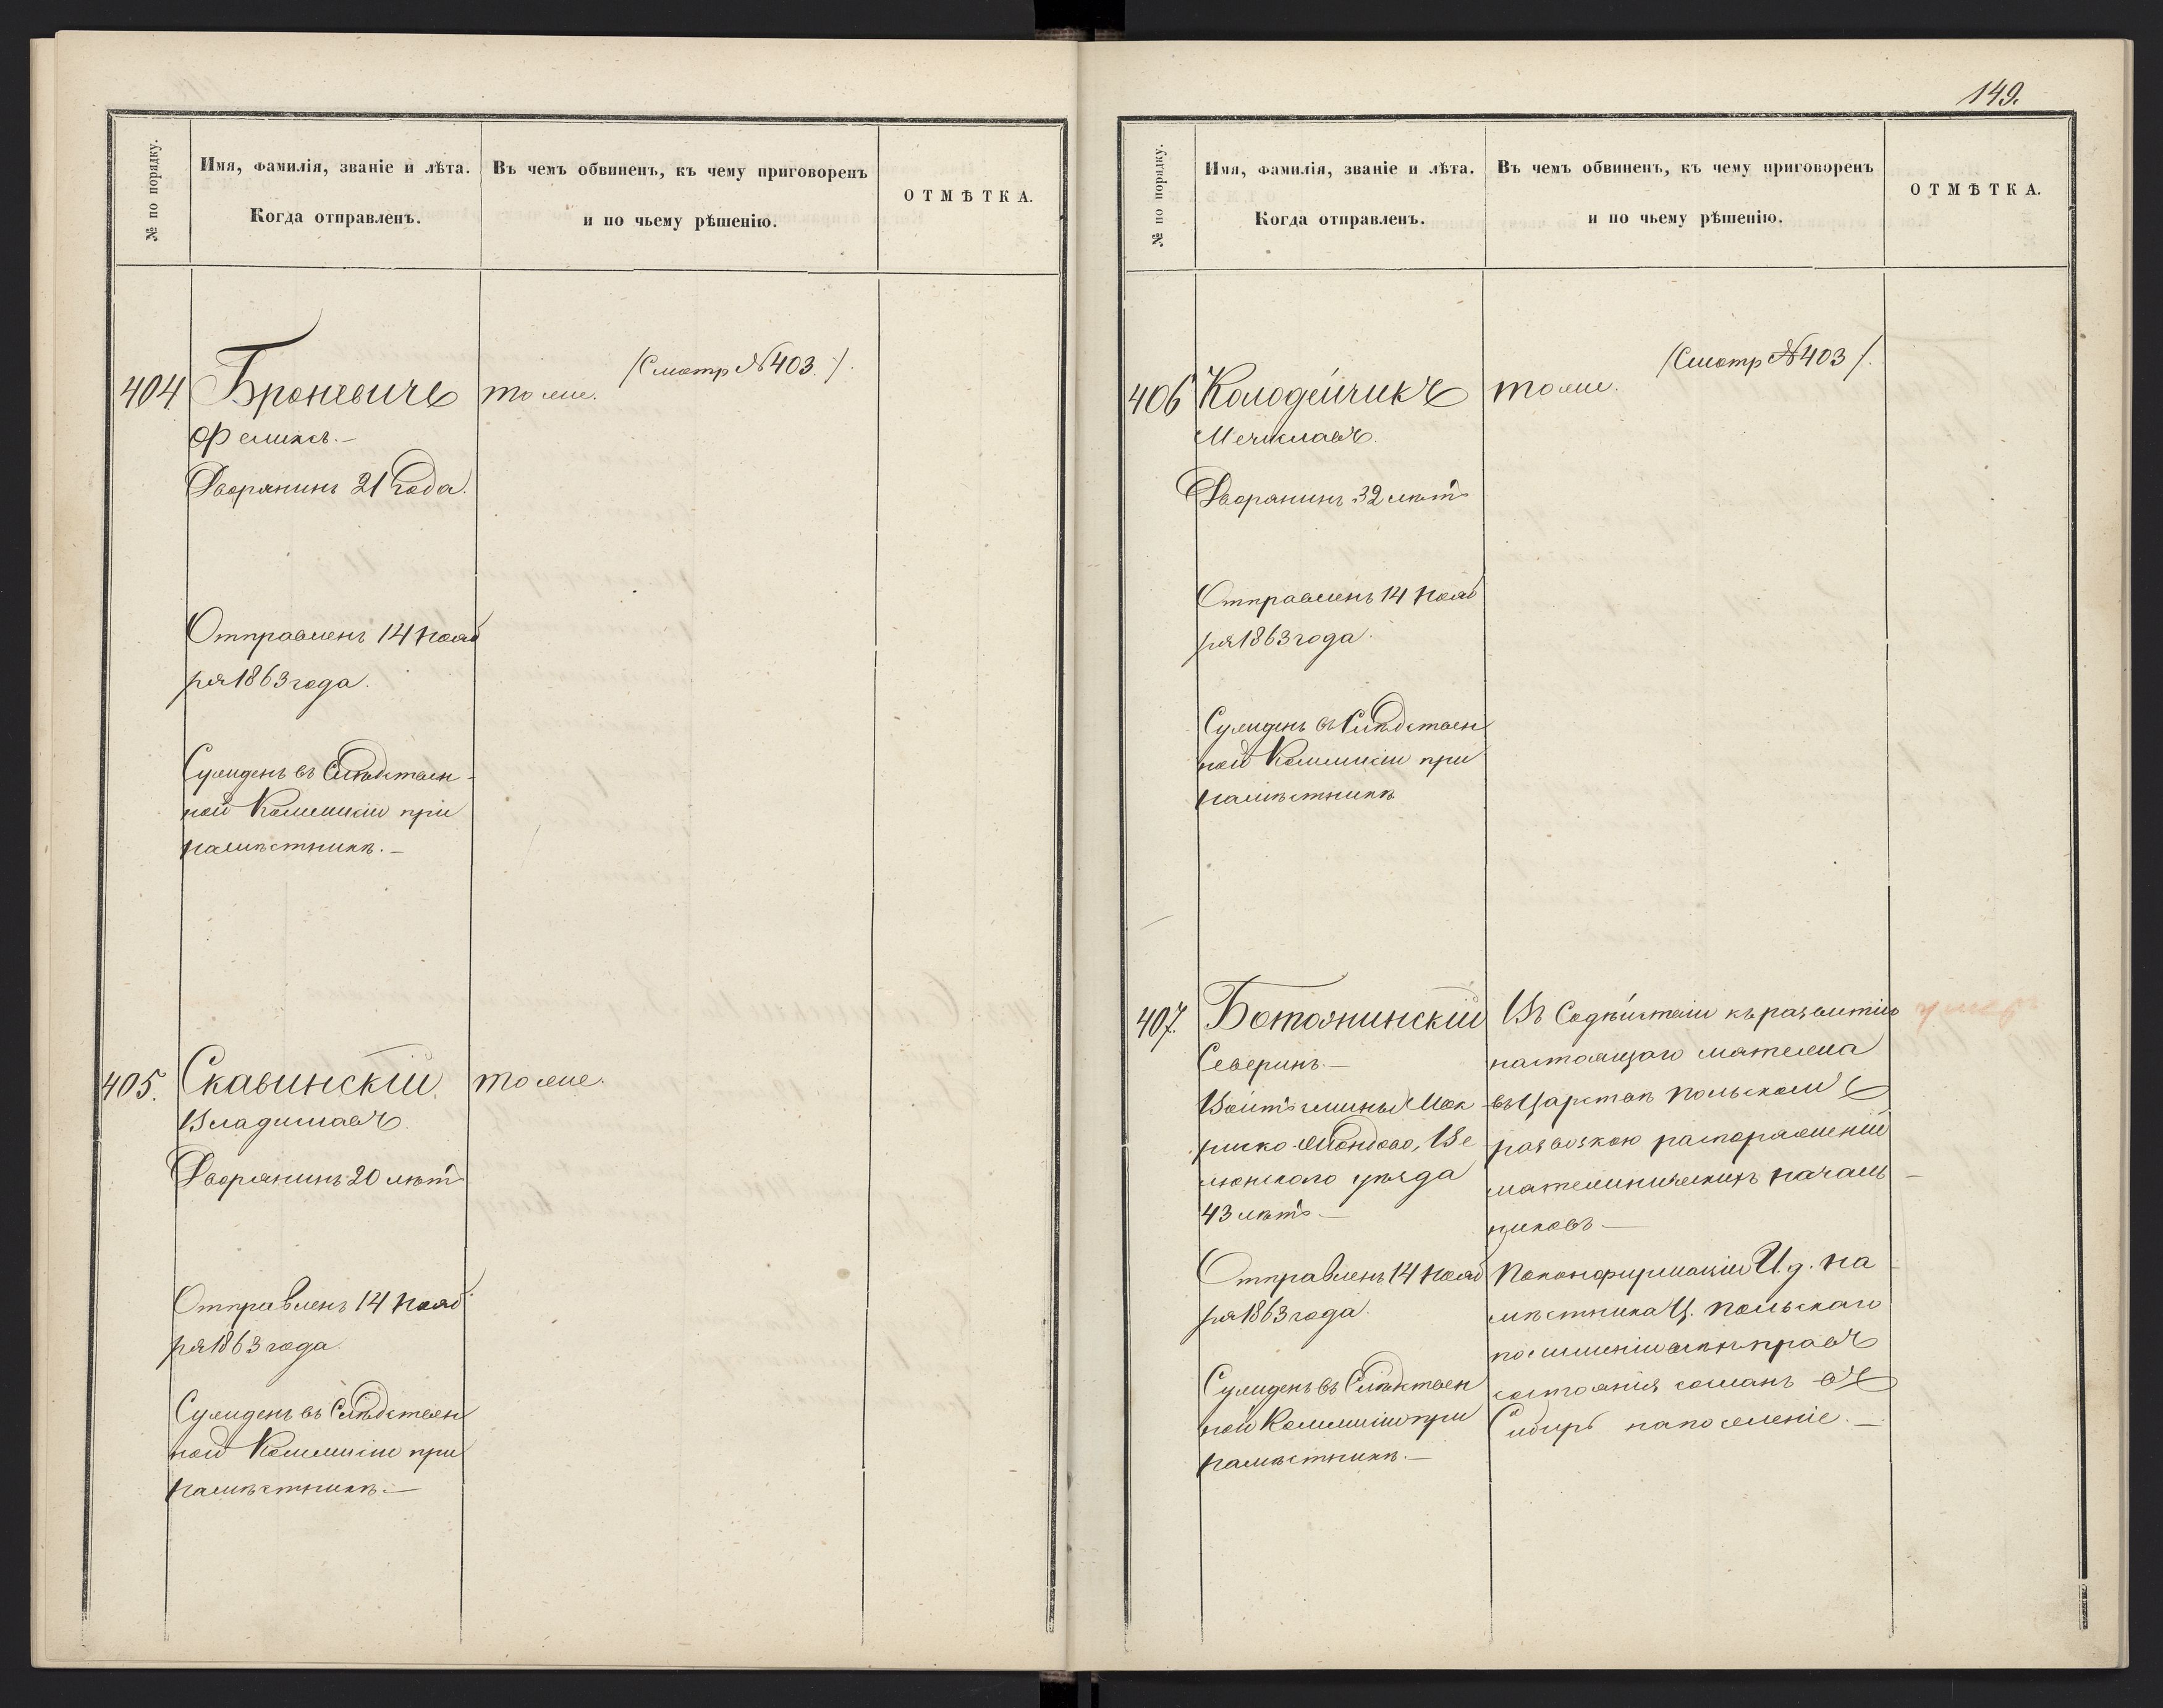 № по порядку.
Имя, фамилія, званіе и лѣта.
Когда отправленъ.
Въ чемъ обвиненъ, къ чему приговоренъ
и по чьему рѣшенію.
ОТМѢТКА.
(Смотр №403.)
404 Броневичъ тоже.
Феликсъ.—
Дворянинъ 21 года.
Отправленъ 14 Нояб
ря 1863 года.
Сужденъ въ Слѣдствен-
ной Коммисіи при
Намѣстникѣ.—
405. Скавинскій тоже.
Владиславъ.
Дворянинъ 20 лѣтъ
Отправленъ 14 Нояб
ря 1863 года.
Сужденъ въ Слѣдствен
ной Коммисіи при
Намѣстникѣ.—
149.
№ по порядку.
Имя, фамилія, званіе и лѣта.
Когда отправленъ.
Въ чемъ обвиненъ, къ чему приговоренъ
и по чьему рѣшенію.
ОТМѢТКА.
(Смотр №403).
406 Колодейчикъ тоже.
Мечиславъ.
Дворянинъ 32 лѣтъ
Отправленъ 14 Нояб
ря 1863 года.
Сужденъ въ Слѣдствен
ной Коммисіи при
Намѣстникѣ
407. Ботоянинскій
Северинъ.—
Войтъ гмины Мок
Ве
люнскаго уѣзда
43 лѣтъ—
Отправленъ 14 Нояб
ря 1863 года.
Сужденъ въ Слѣдствен
ной Коммисіи при
Намѣстникѣ.—
Въ Содѣйствіи къ развитію
настоящаго мятежа
въ Царствѣ Польскомъ
развозкою распоряженій
мятежническихъ началь-
никовъ—
По конфирмаціи И. д. На
мѣстника Ц. Польскаго
по лишеніи всѣхъ правъ
состоянія сосланъ въ
Сибирь на поселеніе.—